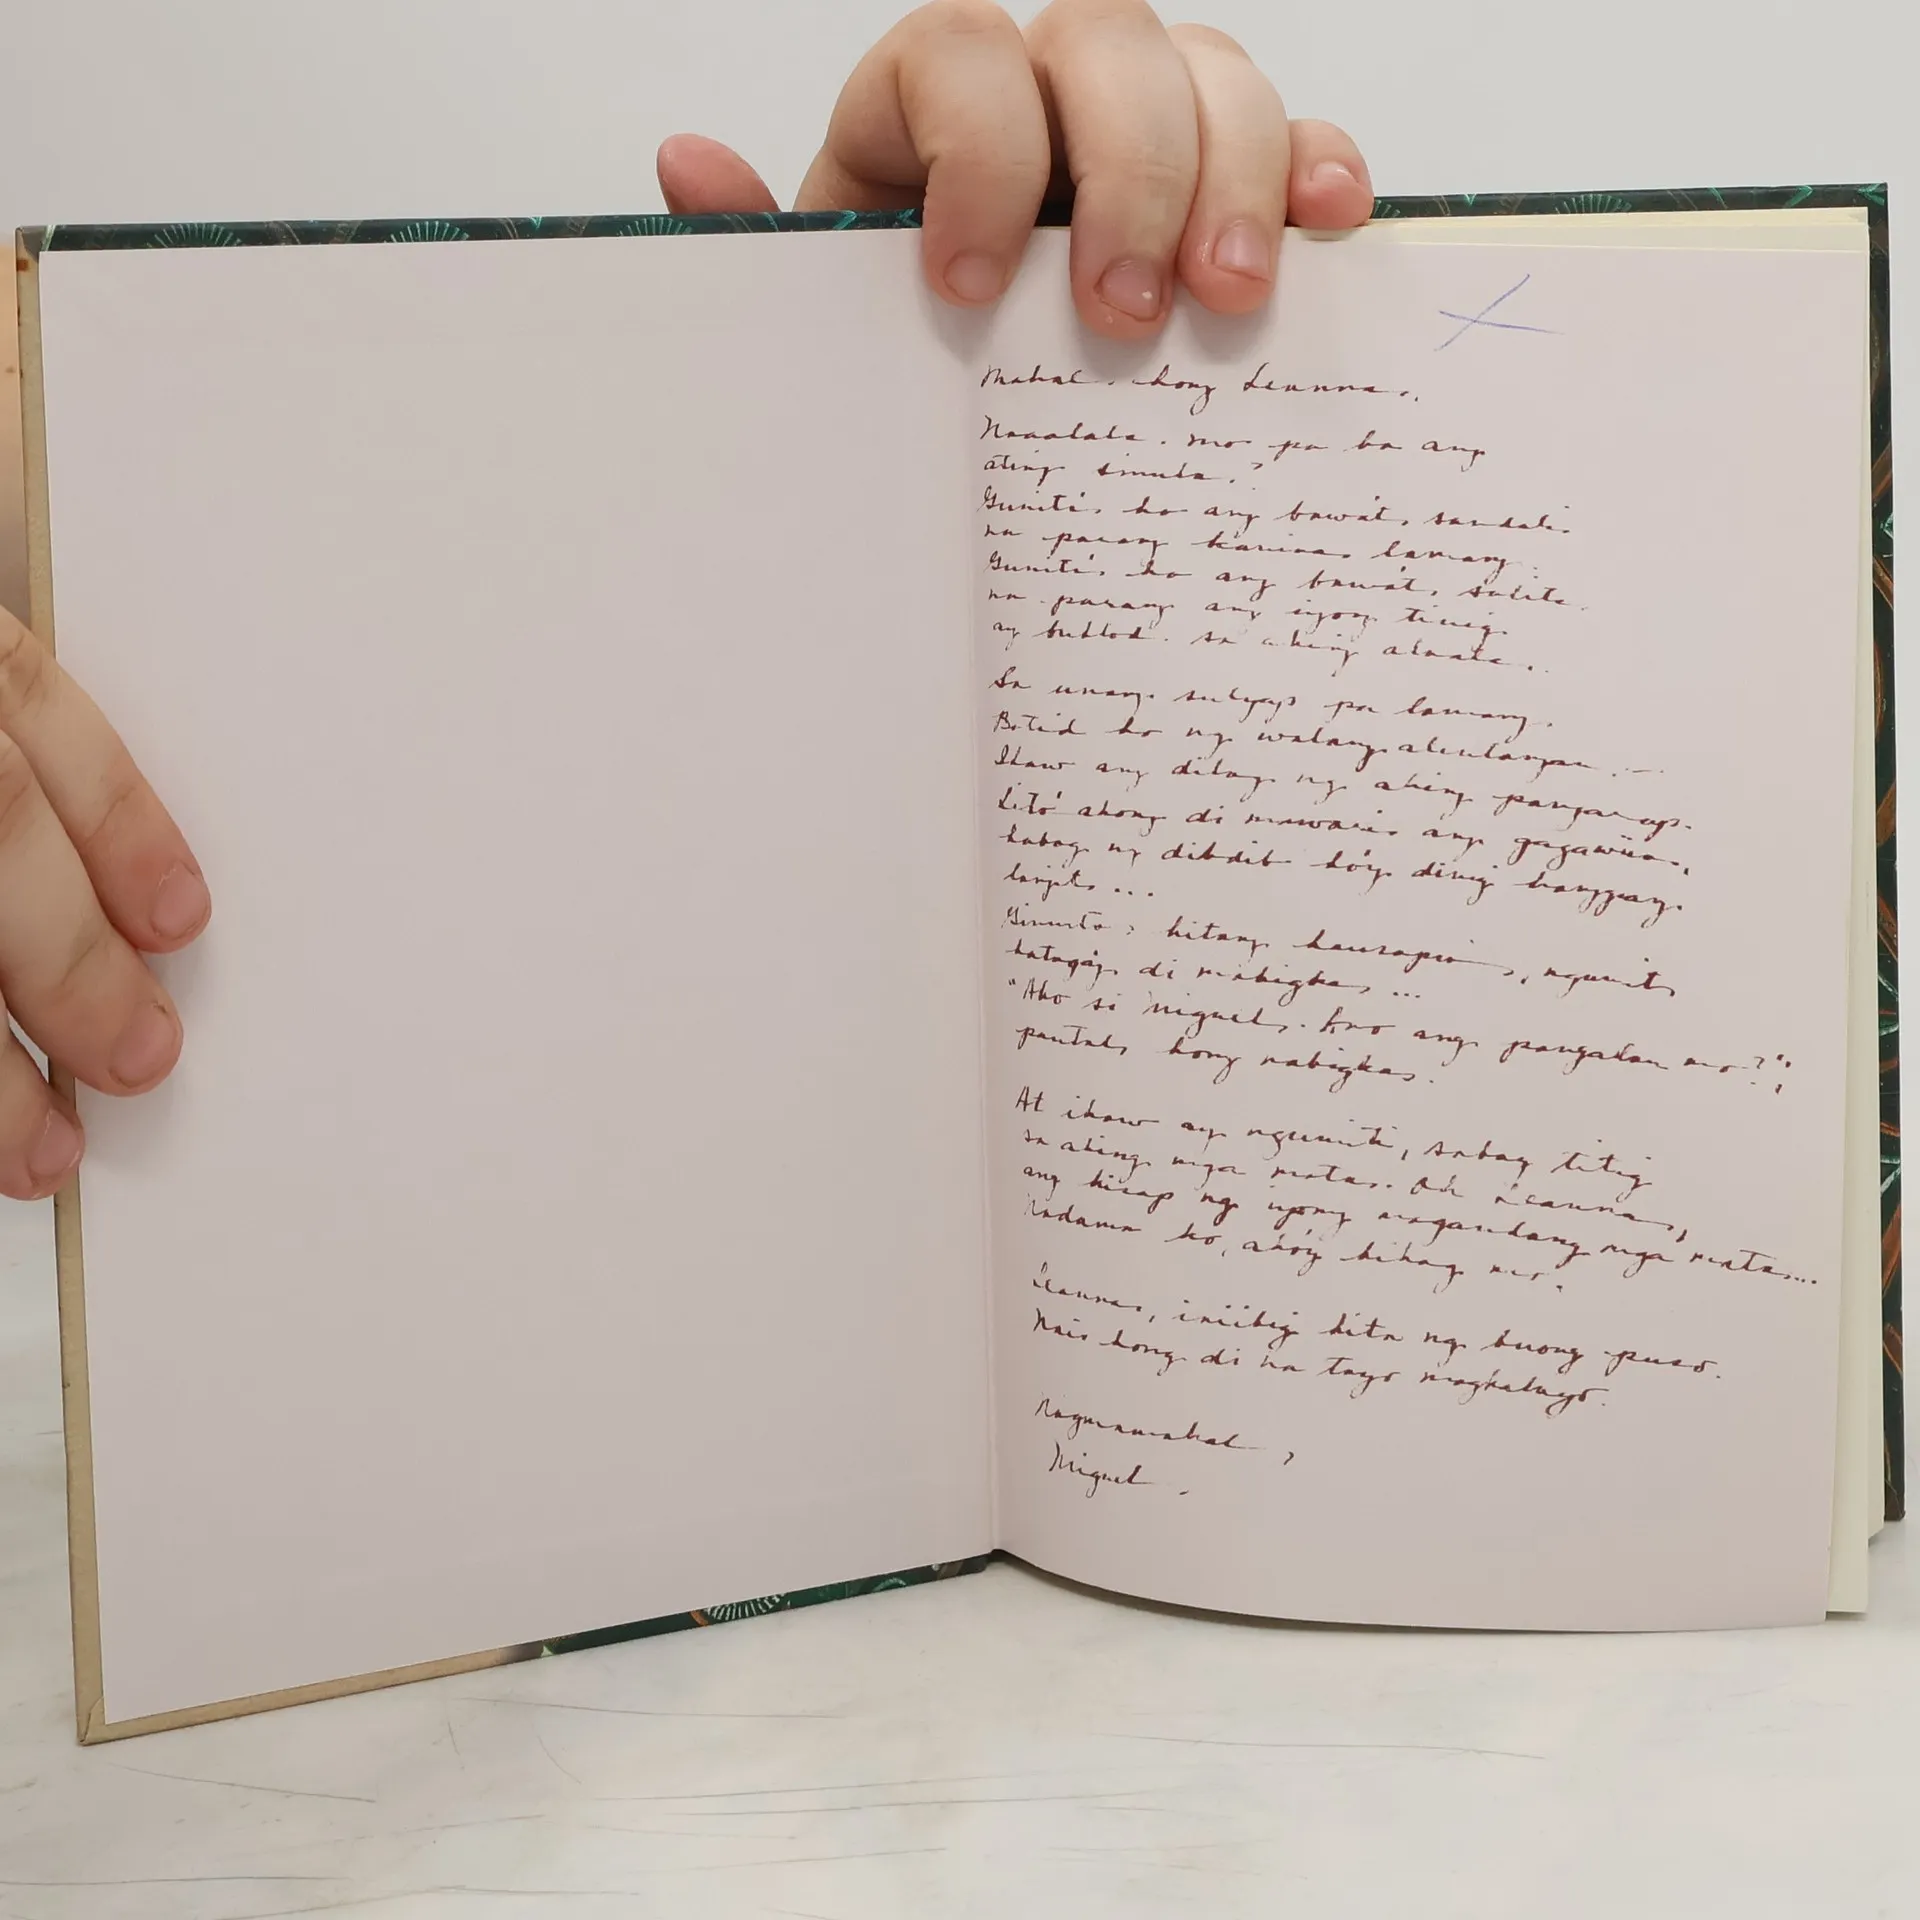 Mahal kong Leanna,
Naaalala mo pa ba ang
ating simula?
Gunitá ko ang bawat sandali
na parang kanina lamang.
Gunitá ko ang bawat salita
na parang ang iyong tinig
ay buklod sa aking alaala.
Sa unang sulyap pa lamang,
Batid ko ng walang alinlangan...
Ikaw ang dilag ng aking pangarap.
Litó akong di mawari ang gagawin,
kabog ng dibdib ko'y dinig hanggang
langit...
Ginusto kitang kausapin, ngunit
katagá'y di mabigkas...
"Ako si Miguel. Ano ang pangalan mo?";
pautal kong nabigkas.
At ikaw ay ngumiti, sabay titig
sa aking mga mata. Oh Leanna,
ang kisap ng iyong magandang mga mata...
Nadama ko, akó'y bihag mo.
Leanna, iniibig kita ng buong puso.
Nais kong di na tayo magkalayo.
Nagmamahal,
Miguel.